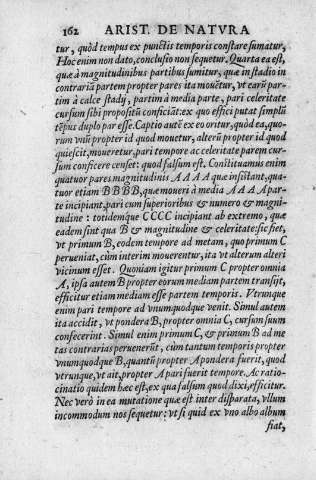 162 ARIST. DE NATVRA
tur, quòd tempus ex punctis temporis constare sumatur,
Hoc enim non dato, conclusio non sequetur. Quarta ea est,
quæ à magnitudinibus partibus sumitur, quæ in stadio in
contrariã partem propter pares ita mouẽtur, vt earũ par-
tim à calce stadij, partim à media parte, pari celeritate
cursum sibi propositũ conficiãt: ex quo effici putat simplũ
tẽpus duplo par esse. Captio autẽ ex eo oritur, quòd ea, quo-
rum vnũ propter id quod mouetur, alterũ propter id quod
quiescit, moueretur, pari tempore ac celeritate parem cur-
sum conficere censet: quod falsum est. Constituamus enim
quatuor pares magnitudinis A A A A quæ insistant, qua-
tuor etiam B B B B, quæ moueri à media A A A A par-
te incipiant, pari cum superioribus & numero & magni-
tudine: totidemque CCCC incipant ab extremo, quæ
eadem sint qua B & magnitudine & celeritate: sic fiet,
vt primum B, eodem tempore ad metam, quo primum C
perueniat, cùm interim mouerentur, ita vt alterum alteri
vicinum esset. Quoniam igitur primum C propter omnia
A, ipsa autem B propter eorum mediam partem transijt,
efficitur etiam mediam esse partem temporis. Vtrunque
enim pari tempore ad vnumquodque venit. Simul autem
ita accidit, vt pondera B, propter omnia C, cursum suum
confecerint. Simul enim primum C, & primum B ad me
tas contrarias peruenerũt, cùm tantum temporis propter
vnumquodque B, quantũ propter A pondera fuerit, quod
vtrunque, vt ait, propter A pari fuerit tempore. Ac ratio-
cinatio quidem hæc est, ex qua falsum quod dixi, efficitur.
Nec verò in ea mutatione quæ est inter disparata, vllum
incommodum nos sequetur: vt si quid ex vno albo album
fiat,